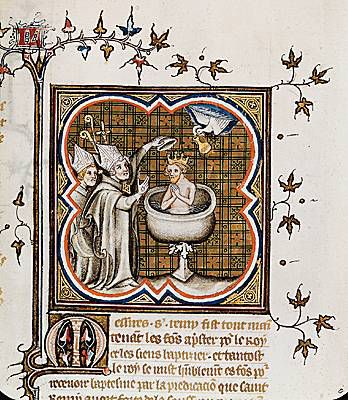 Messires · s. remy fist tout main
tenant les fons aprster por le Roy
et les siens baptizier · et tantost
le roy se mist es fons por
recevoir baptesme par la predicacion que saint
Remy